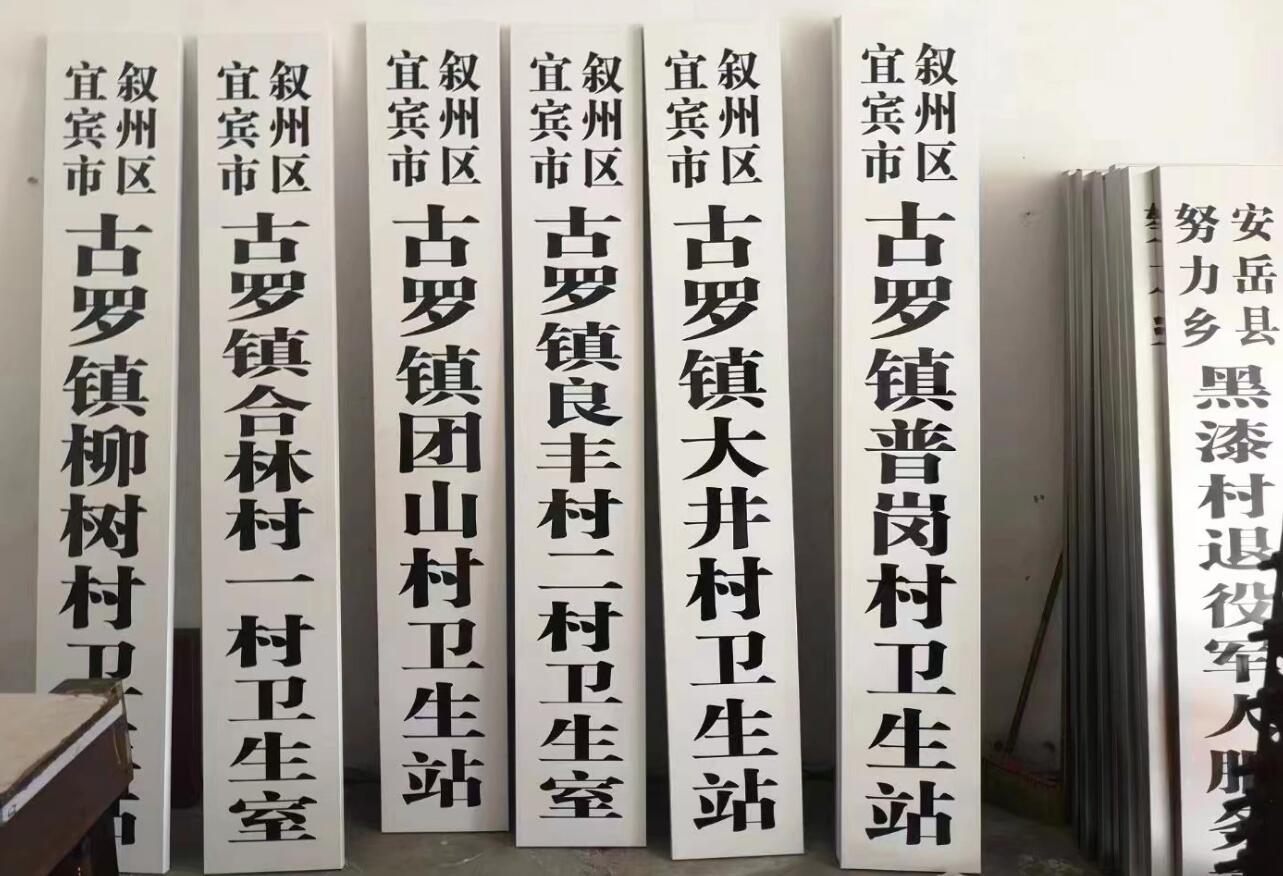 宜宾市
叙州区
古罗镇柳树村卫生站
宜宾市
叙州区
古罗镇合林村一村卫生室
宜宾市
叙州区
古罗镇团山村卫生站
宜宾市
叙州区
古罗镇良丰村二村卫生室
宜宾市
叙州区
古罗镇大井村卫生站
宜宾市
叙州区
古罗镇普岗村卫生站
安岳县
努力乡
黑漆村退役军人服务